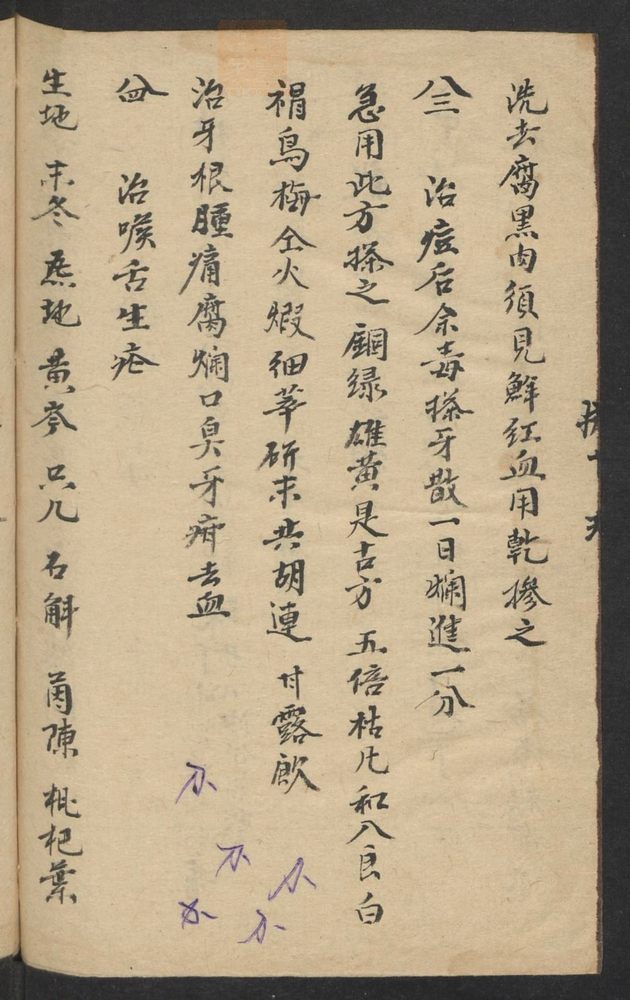 洗去腐黑肉須見鮮紅血用乾摻之
八三 治痘后余毒搽牙散一日爛進一分
急用此方搽之 銅緑 雄黄是古方 五倍枯凡和入良白
褐烏梅仝火煅細莘研末共胡連 甘露飲
治牙根腫痛腐爛口臭牙疳去血
八四 治喉舌生疮
生地 末冬 熟地 黄芩 只几 石斛 茵陳 枇杷葉